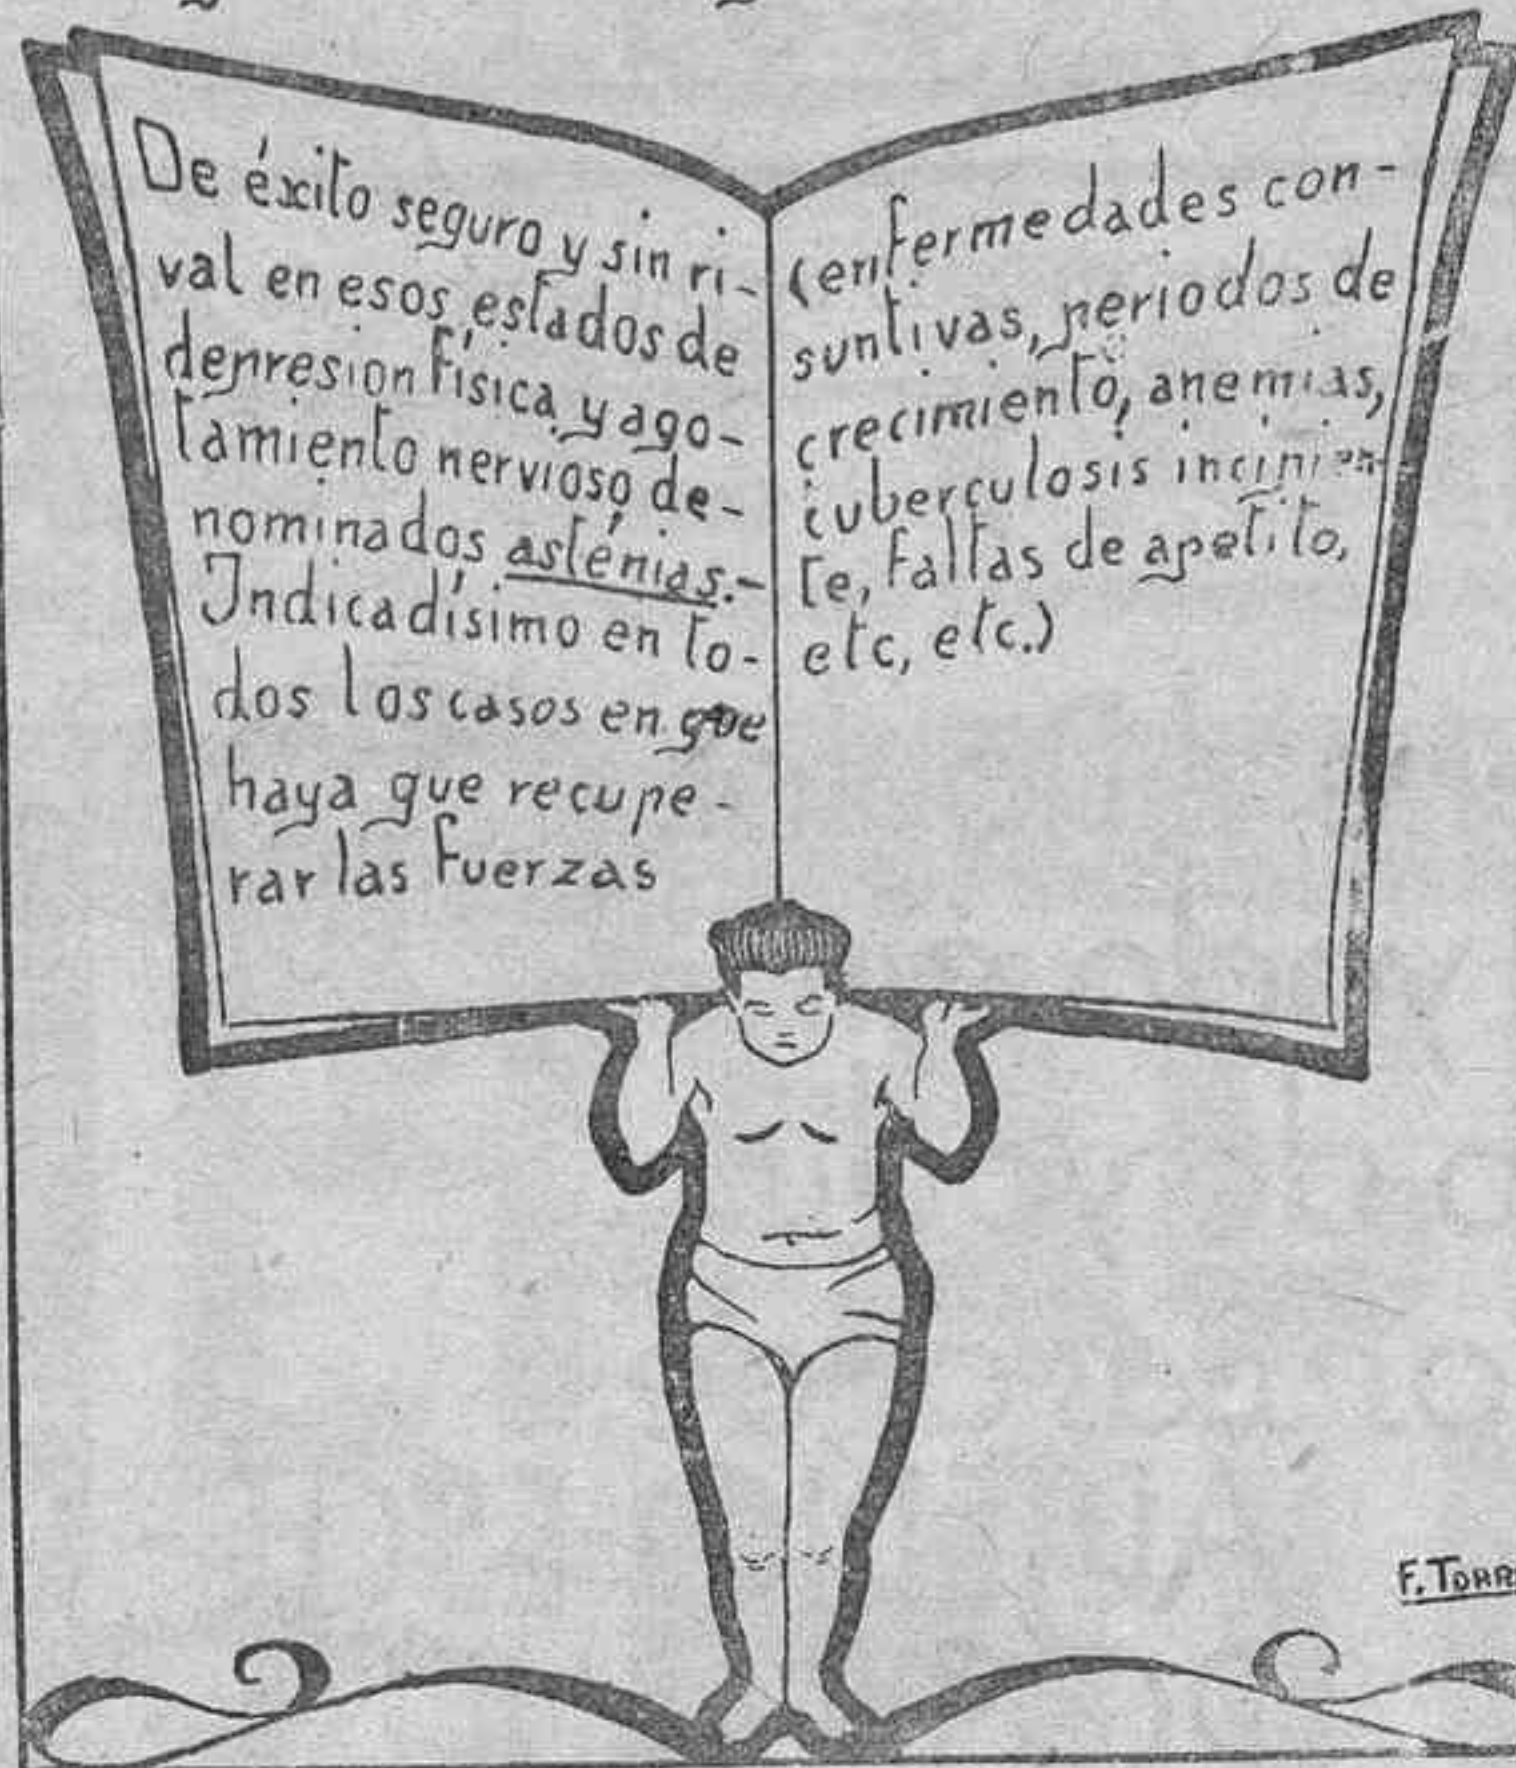 De éxito seguro y sin ri-
val en esos estados de
depresion física y ago-
tamiento nervioso de-
nominados asténias.-
Indicadísimo en to-
dos los casos en que
haya que recupe-
rar las fuerzas
(enfermedades con-
suntivas, periodos de
crecimiento, anemias,
tuberculosis incipien-
te, faltas de apetito,
etc, etc.)